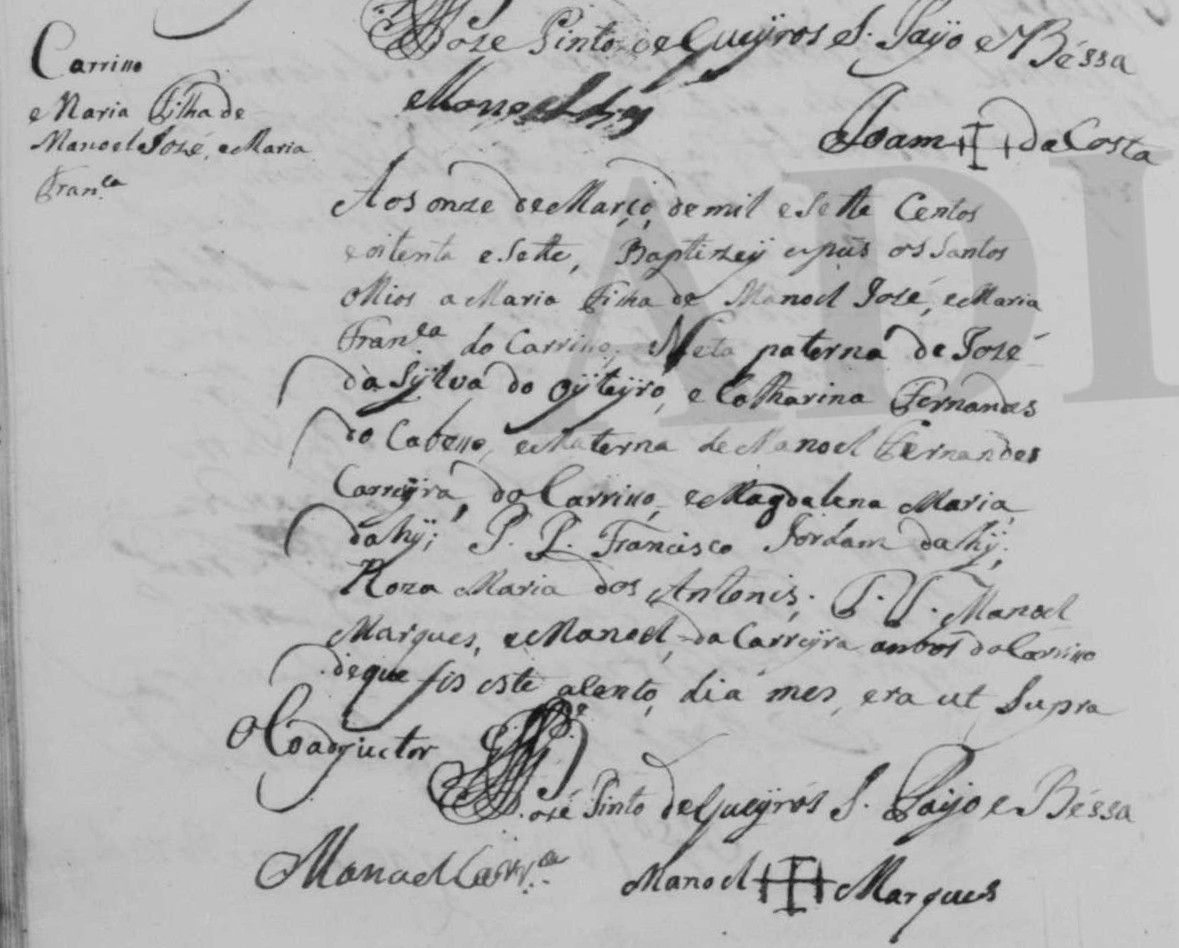 José Pinto de Queÿros S. Paÿo e Béssa
Manoel
Joam + da Costa
Carrisso
Maria Filha de
Manoel José, e Maria
Fran.ca
Aos onze de Março, de mil e Sette Centos
e oitenta e Sette, Baptizeÿ e pûs os Santos
Ollios a Maria Filha de Manoel José, e Maria
Fran.ca do Carrisso, Neta paterna de José
da Sÿlva do Oÿteÿro, e Catharina Fernandes
do Cabesso, e Materna de Manoel Fernandes
Carreÿra, do Carrisso, e Magdalena Maria
dahÿ; P. P. Francisco Jordam dahÿ,
Roza Maria dos Antonis; P. T. Manoel
Marques, e Manoel da Carreÿra anbos do Carrisso
de que fis este asento, dia mes, era ut Supra
O Coadjuctor P.e
José Pinto de Queÿrós S. Paÿo e Béssa
Manoel Carr.ra
Manoel + Marques
ADL